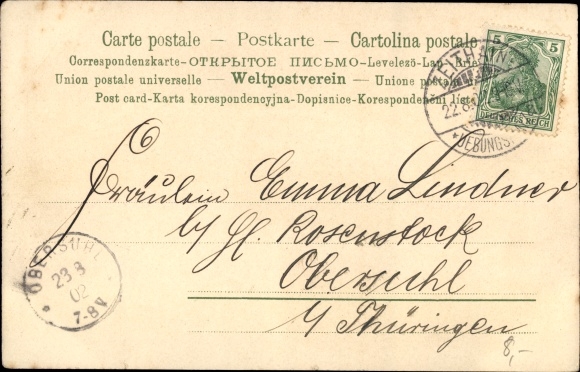 Carte postale — Postkarte — Cartolina postale
Correspondenzkarte-ОТКРЫТОЕ ПИСЬМО-Levelező-Lap
Union postale universelle — Weltpostverein — Unione
Post card-Karta korespondencyjna-Dopisnice-Korespondenční
5 5
DEUTSCHES REICH
22.8.
Fräulein Emma Lindner
b/ Hl. Rosenstock
Obersuhl
i/ Thüringen
OBERSUHL
23 8
02
7-8V
8,-